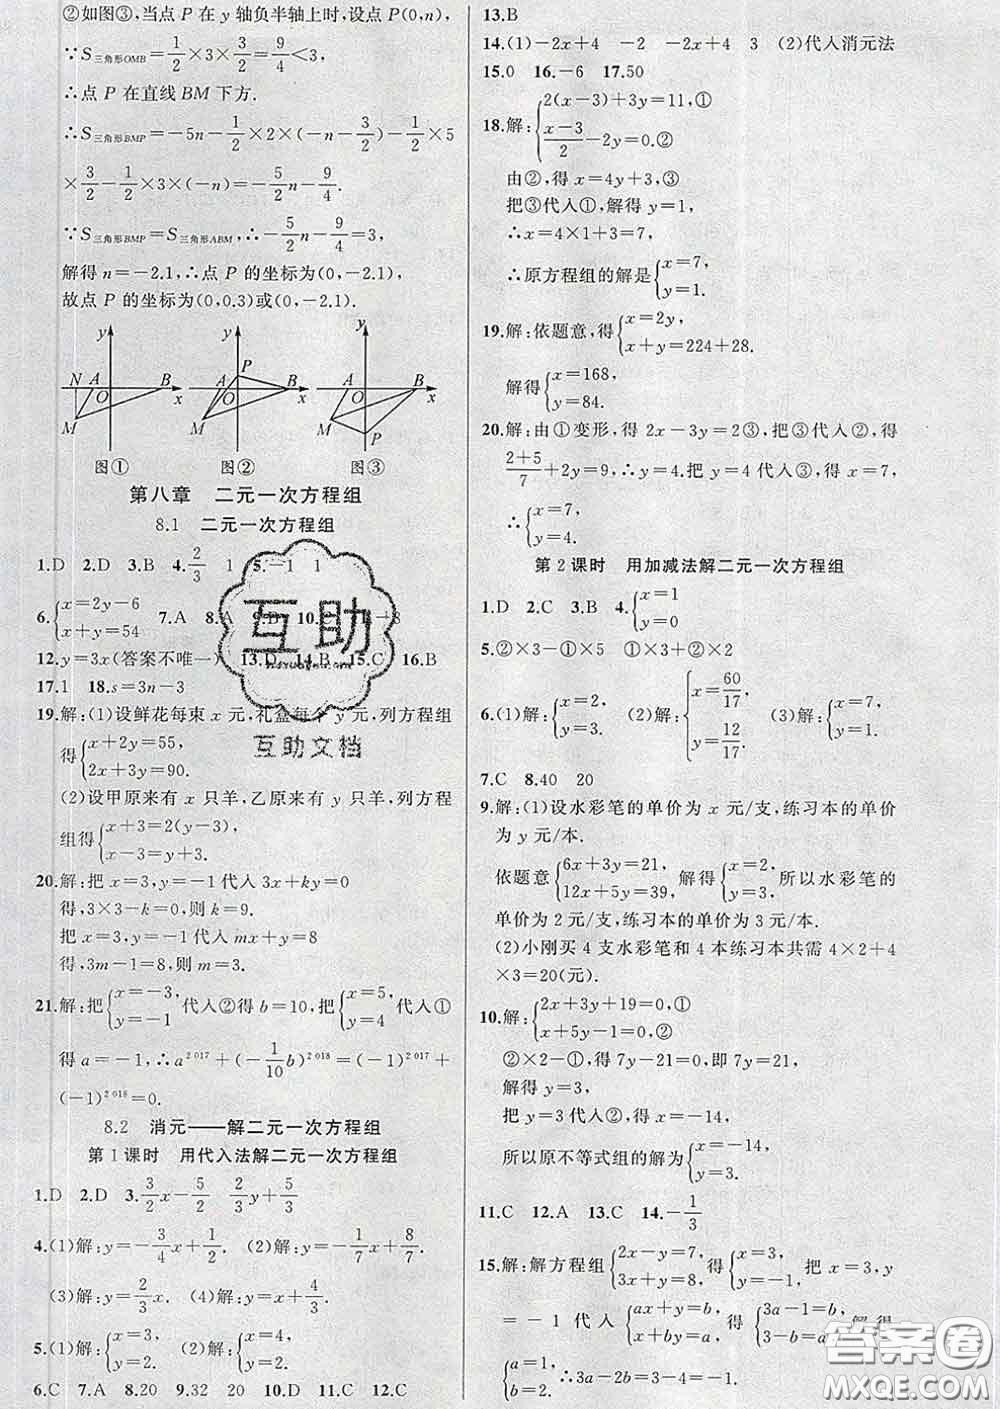 ②如图③,当点 P 在 y 轴负半轴上时,设点 P(0,n),
∵S三角形OMB=1/2×3×3/2=9/4<3,
∴点 P 在直线 BM 下方.
∴S三角形BMP=-5n-1/2×2×(-n-3/2)-1/2×5
×3/2-1/2×3×(-n)=-5/2n-9/4.
∵S三角形BMP=S三角形ABM,∴-5/2n-9/4=3,
解得 n=-2.1,∴点 P 的坐标为(0,-2.1),
故点 P 的坐标为(0,0.3)或(0,-2.1).
y y y
N A B A P B A B
O x O x O x
M M M P
图① 图② 图③
第八章 二元一次方程组
8.1 二元一次方程组
1.D 2.D 3.B 4.2/3 1 5.-1 1
6.{x=2y-6
x+y=54 7.A 8.A 9.B 10.C
12.y=3x(答案不唯一) 13.D 14.B 15.C 16.B
17.1 18.s=3n-3
19.解:(1)设鲜花每束 x 元,礼盒每个 y 元,列方程组
得{x+2y=55,
2x+3y=90.
(2)设甲原来有 x 只羊,乙原来有 y 只羊,列方程
组得{x+3=2(y-3),
x-3=y+3.
20.解:把 x=3,y=-1 代入 3x+ky=0
得,3×3-k=0,则 k=9.
把 x=3,y=-1 代入 mx+y=8
得,3m-1=8,则 m=3.
21.解:把{x=-3,
y=-1 代入②得 b=10,把{x=5,
y=4 代入①
得 a=-1,∴a²⁰¹⁷+(-1/10b)²⁰¹⁸=(-1)²⁰¹⁷+
(-1)²⁰¹⁸=0.
8.2 消元——解二元一次方程组
第 1 课时 用代入法解二元一次方程组
1.D 2.D 3.3/2x-5/2 2/3y+5/3
4.(1)解:y=-3/4x+1/2. (2)解:y=-1/7x+8/7.
(3)解:y=2/3x. (4)解:y=x+4/3.
5.(1)解:{x=3,
y=2. (2)解:{x=4,
y=2.
6.C 7.A 8.20 9.32 20 10.D 11.C 12.C
13.B
14.(1)-2x+4 -2 -2x+4 3 (2)代入消元法
15.0 16.-6 17.50
18.解:{2(x-3)+3y=11,①
(x-3)/2-2y=0.②
由②,得 x=4y+3,③
把③代入①,解得 y=1,
∴x=4×1+3=7,
∴原方程组的解是{x=7,
y=1.
19.解:依题意,得{x=2y,
x+y=224+28.
解得{x=168,
y=84.
20.解:由①变形,得 2x-3y=2③,把③代入②,得
(2+5)/7+2y=9,∴y=4.把 y=4 代入③,得 x=7,
∴{x=7,
y=4.
第 2 课时 用加减法解二元一次方程组
1.D 2.C 3.B 4.{x=1
y=0
5.②×3-①×5 ①×3+②×2
6.(1)解:{x=2,
y=3. (2)解:{x=60/17
y=12/17. (3)解:{x=2,
y=1.
7.C 8.40 20
9.解:(1)设水彩笔的单价为 x 元/支,练习本的单价
为 y 元/本.
依题意{6x+3y=21,
12x+5y=39, 解得{x=2,
y=3. 所以水彩笔的
单价为 2 元/支,练习本的单价为 3 元/本.
(2)小刚买 4 支水彩笔和 4 本练习本共需 4×2+4
×3=20(元).
10.解:{2x+3y+19=0,①
x+5y-1=0.②
②×2-①,得 7y-21=0,即 7y=21,
解得 y=3,
把 y=3 代入②,得 x=-14,
所以原不等式组的解为{x=-14,
y=3.
11.C 12.A 13.C 14.-1/3
15.解:解方程组{2x-y=7,
3x+y=8, 得{x=3,
y=-1, 把 x=3,y
=-1 代入{ax+y=b,
x+by=a, 得{3a-1=b,
3-b=a. 解得
{a=1,
b=2. ∴3a-2b=3-4=-1.
互助
互助文档
答案圈
MXQE.COM